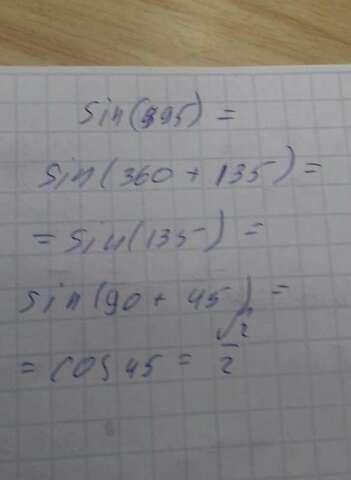 sin(995) =
sin(360 + 135) =
= sin(135) =
sin(90 + 45) =
= cos 45 = √2/2